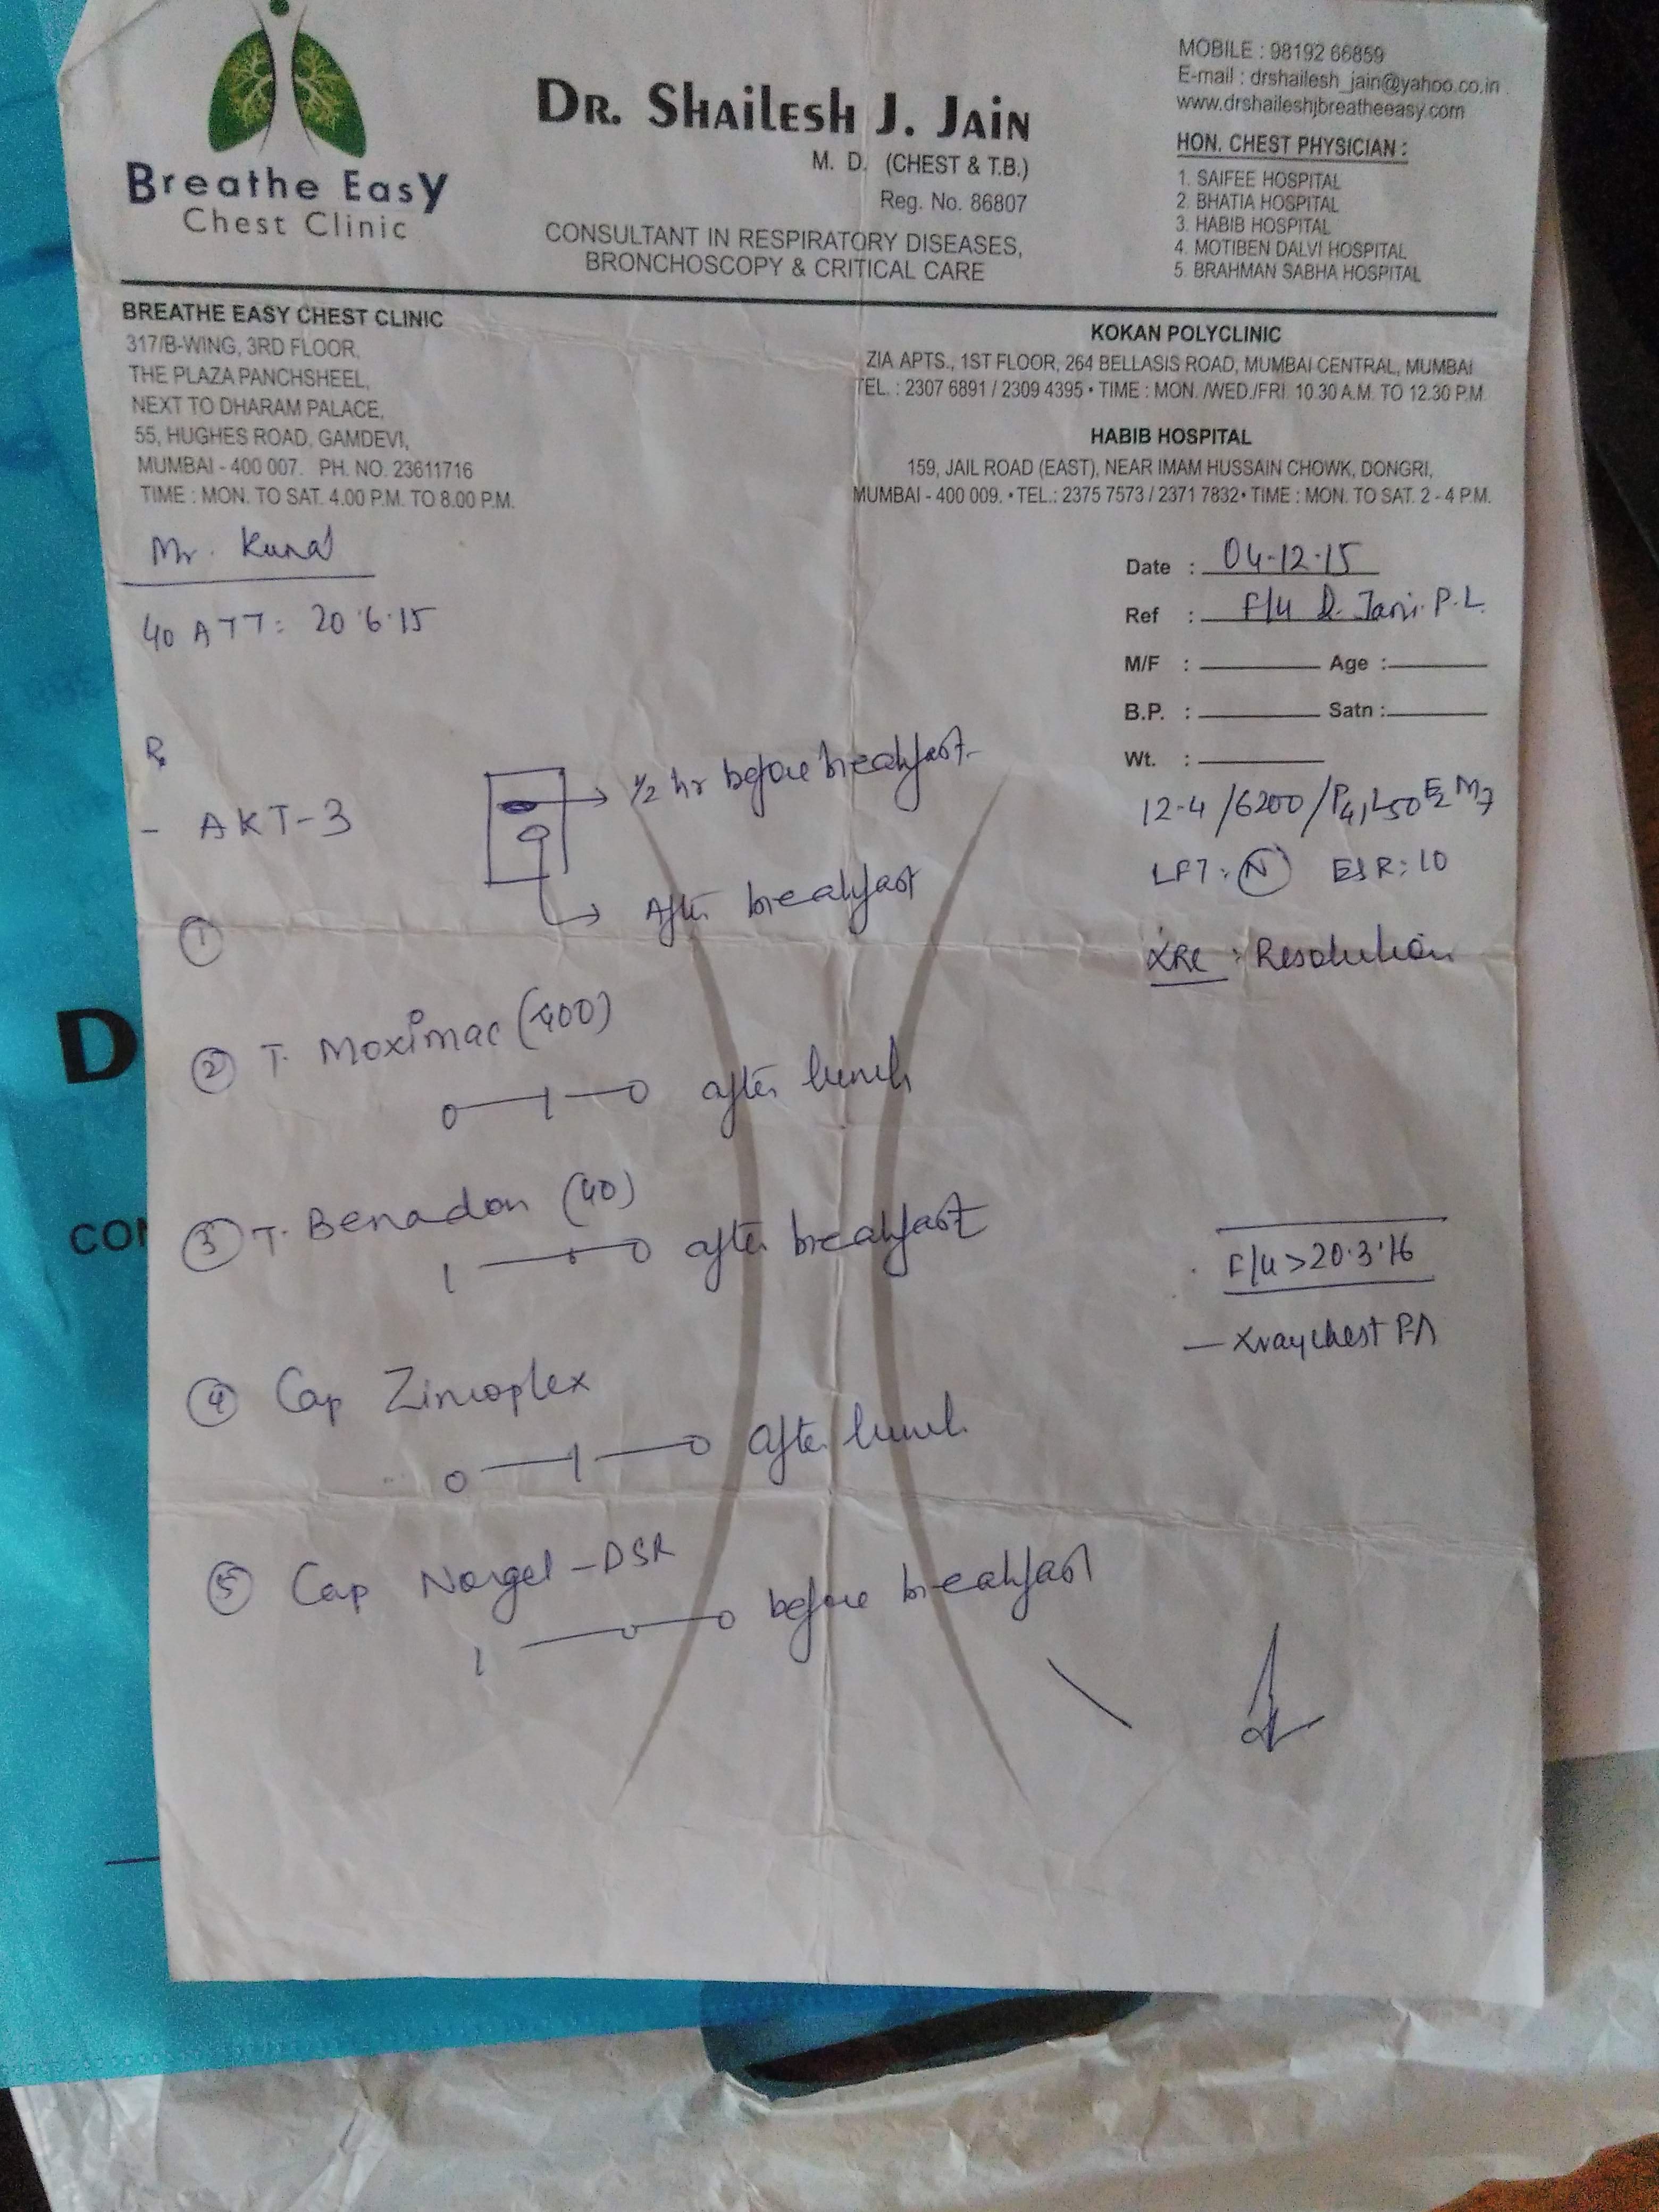 Breathe Easy
Chest Clinic
DR. SHAILESH J. JAIN
M. D. (CHEST & T.B.)
Reg. No. 86807
CONSULTANT IN RESPIRATORY DISEASES,
BRONCHOSCOPY & CRITICAL CARE
MOBILE : 98192 66859
E-mail : drshailesh_jain@yahoo.co.in
www.drshaileshjbreatheeasy.com
HON. CHEST PHYSICIAN :
1. SAIFEE HOSPITAL
2. BHATIA HOSPITAL
3. HABIB HOSPITAL
4. MOTIBEN DALVI HOSPITAL
5. BRAHMAN SABHA HOSPITAL
BREATHE EASY CHEST CLINIC
317/B-WING, 3RD FLOOR,
THE PLAZA PANCHSHEEL,
NEXT TO DHARAM PALACE,
55, HUGHES ROAD, GAMDEVI,
MUMBAI - 400 007. PH. NO. 23611716
TIME : MON. TO SAT. 4.00 P.M. TO 8.00 P.M.
KOKAN POLYCLINIC
ZIA APTS., 1ST FLOOR, 264 BELLASIS ROAD, MUMBAI CENTRAL, MUMBAI
TEL. : 2307 6891 / 2309 4395 • TIME : MON. /WED./FRI. 10.30 A.M. TO 12.30 P.M.
HABIB HOSPITAL
159, JAIL ROAD (EAST), NEAR IMAM HUSSAIN CHOWK, DONGRI,
MUMBAI - 400 009. • TEL.: 2375 7573 / 2371 7832 • TIME : MON. TO SAT. 2 - 4 P.M.
Mr. Kunal
ATT: 20.6.15
Date : 04-12-15
Ref : F/u Dr. Jani. P.L.
M/F : Age :
B.P. : Satn :
Wt. :
12.4 /6200 /P41 L50 E2 M7
LFT: N ESR: 10
: Resolution
Rx
- AKT-3
1/2 hr before breakfast
After breakfast
1
2 T. Moximac (400)
0 — 1 — 0 after lunch
3 T. Benadon (40)
1 — 0 — 0 after breakfast
4 Cap Zincoplex
0 — 1 — 0 after lunch
5 Cap Norgel-DSR
1 — 0 — 0 before breakfast
F/u > 20.3.16
— Xray chest PA
D
CON